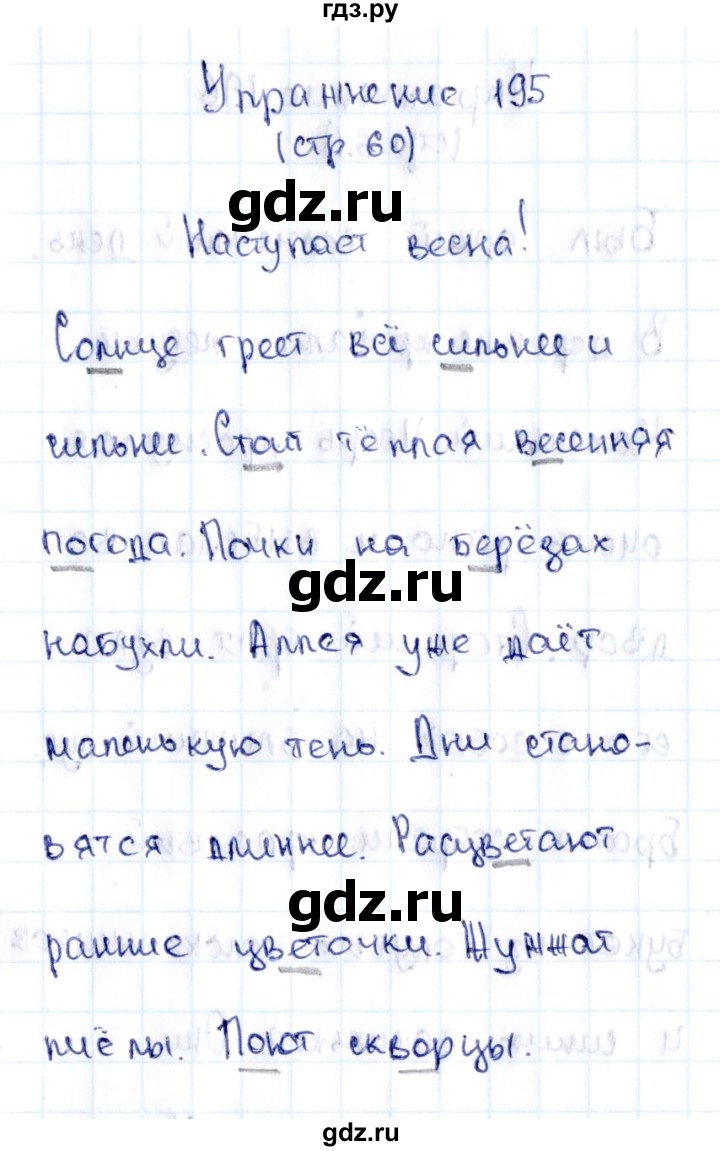 гдз.ру
Упражнение 195
(стр. 60)
gdz.ru
Наступает весна!
Солнце греет всё сильнее и
сильнее. Стоит тёплая весенняя
погода. Почки на берёзах
gdz.ru
набухли. Аллея уже даёт
маленькую тень. Дни стано-
вятся длиннее. Расцветают
gdz.ru
ранние цветочки. Жужжат
пчёлы. Поют скворцы.
gdz.ru